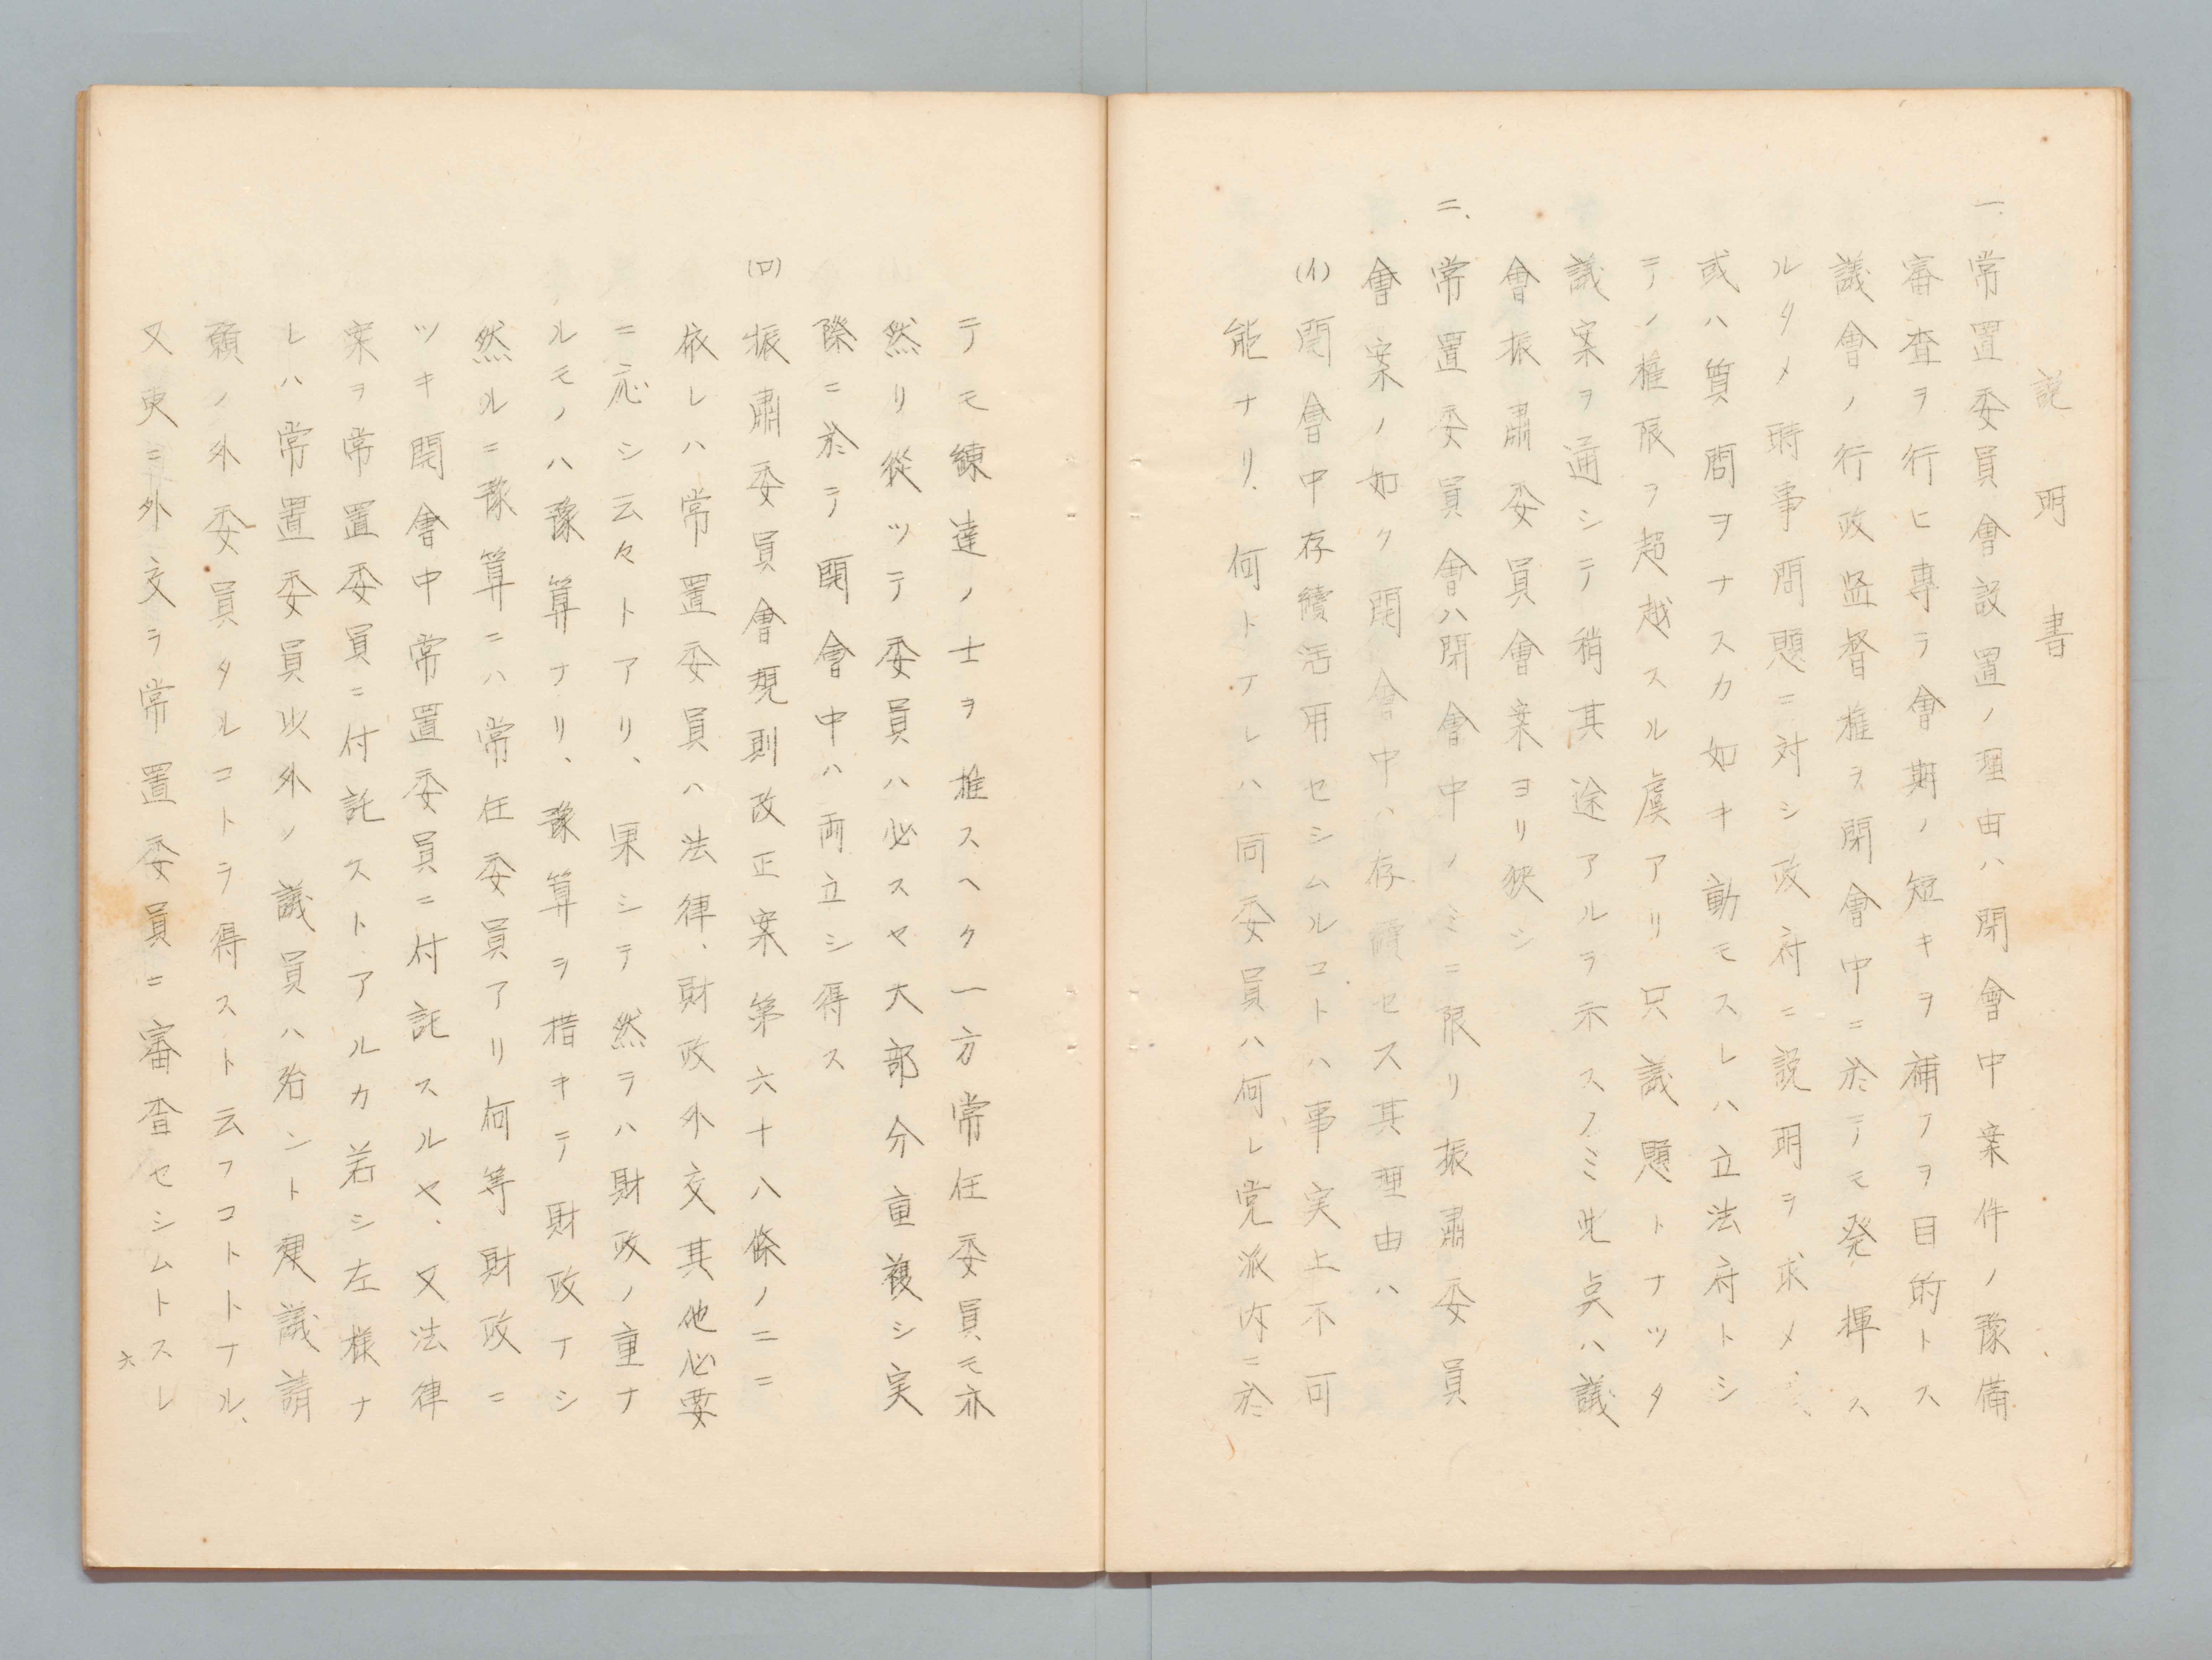 説明書
一、常置委員會設置ノ理由ハ閉會中案件ノ豫備
審査ヲ行ヒ專ラ會期ノ短キヲ補フヲ目的トス
議會ノ行政監督権ヲ閉會中ニ於テモ発揮ス
ルタメ時事問題ニ対シ政府ニ説明ヲ求メ、
或ハ質問ヲナスカ如キ動モスレハ立法府トシ
テノ権限ヲ超越スル虞アリ只議題トナツタ
議案ヲ通シテ稍其途アルヲ示スノミ此点ハ議
會振肅委員會案ヨリ狹シ
二、常置委員會ハ閉會中ノミニ限リ振肅委員
會案ノ如ク開會中ハ存續セス其理由ハ
(イ)開會中存續活用セシムルコトハ事実上不可
能ナリ、何トナレハ同委員ハ何レ党派内ニ於
テモ練達ノ士ヲ推スヘク一方常任委員モ亦
然リ從ツテ委員ハ必スヤ大部分重複シ実
際ニ於テ開會中ハ両立シ得ス
(ロ)振肅委員會規則改正案第六十八條ノ二ニ
依レハ常置委員ハ法律、財政外交其他必要
ニ応シ云々トアリ、果シテ然ラハ財政ノ重ナ
ルモノハ豫算ナリ、豫算ヲ措キテ財政ナシ
然ルニ豫算ニハ常任委員アリ何等財政ニ
ツキ開會中常置委員ニ付託スルヤ、又法律
案ヲ常置委員ニ付託ストアルカ若シ左様ナ
レハ常置委員以外ノ議員ハ殆ント建議請
願ノ外委員タルコトヲ得スト云フコトトナル、
又更ニ外交ヲ常置委員ニ審査セシムトスレ
六